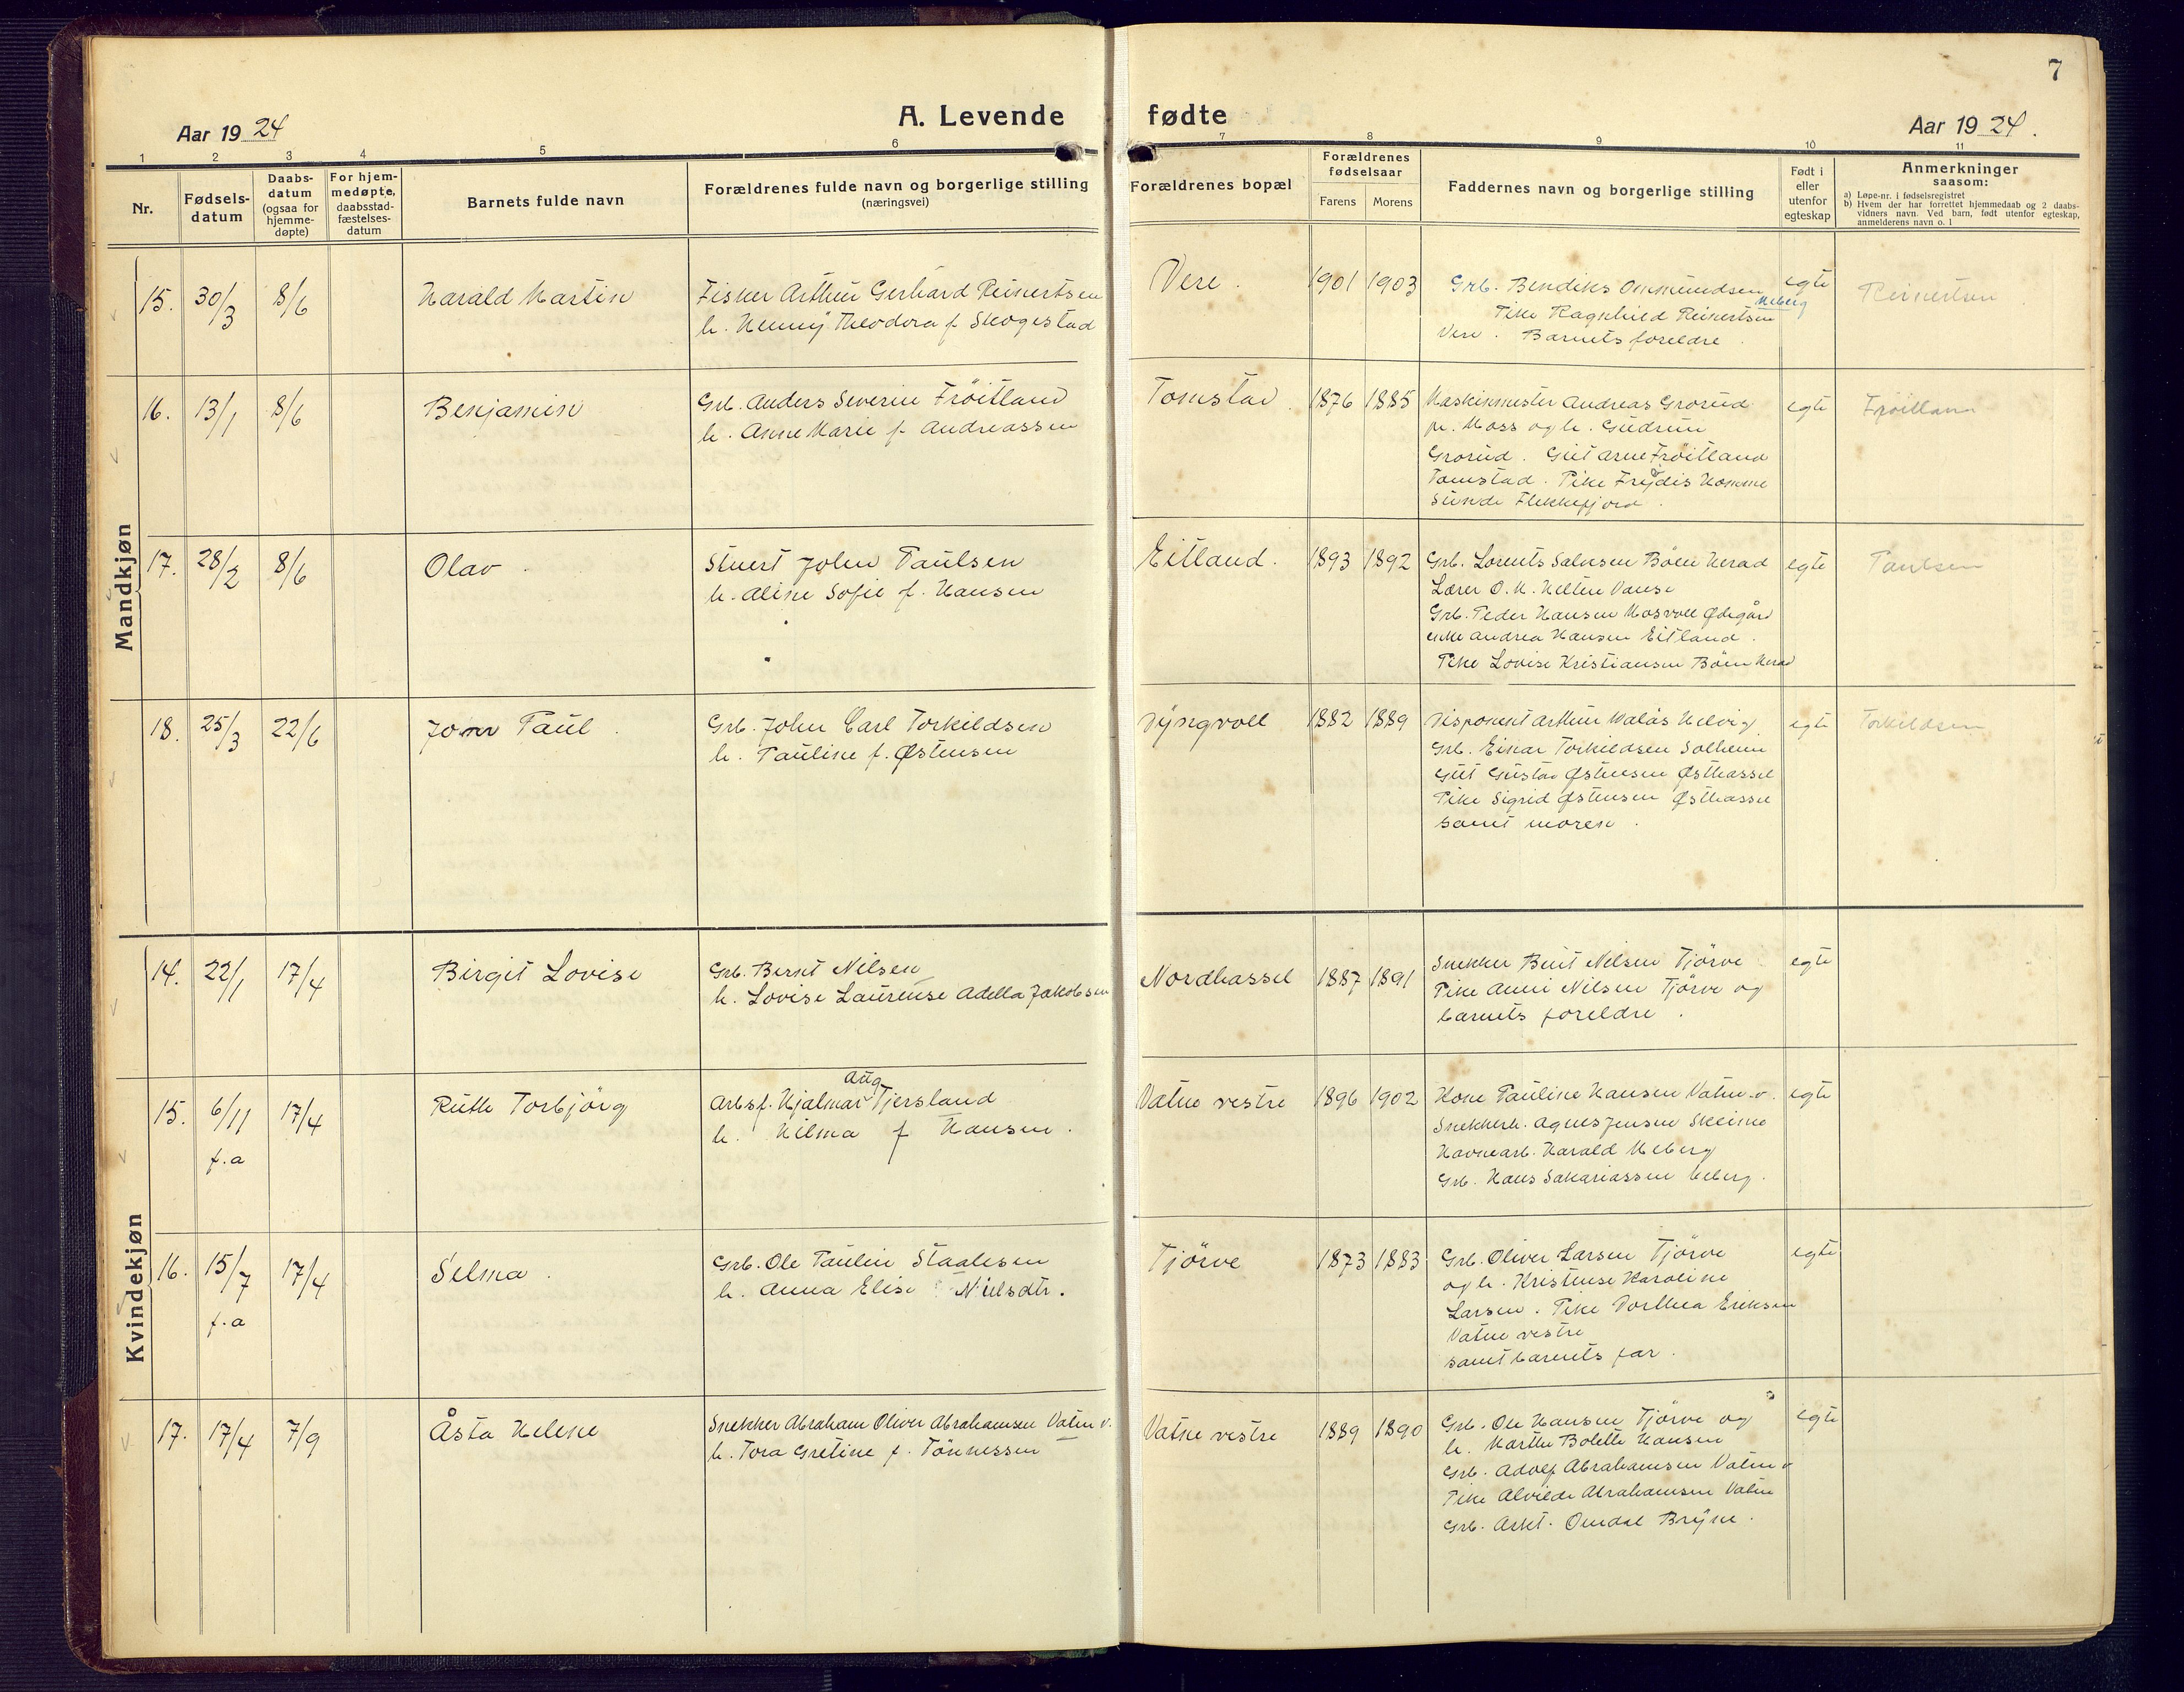 7
A. Levende fødte
Aar 1924
Aar 1924.
1 2 3 4 5 6 7 8 9 10 11
Nr.
Fødsels-
datum
Daabs-
datum
(ogsaa for
hjemme-
døpte)
For hjem-
medøpte,
daabsstad-
fæstelses-
datum
Barnets fulde navn
Forældrenes fulde navn og borgerlige stilling
(næringsvei)
Forældrenes bopæl
Forældrenes
fødselsaar
Farens Morens
Faddernes navn og borgerlige stilling
Født i
eller
utenfor
egteskap
Anmerkninger
saasom:
a) Løpe-nr. i fødselsregistret
b) Hvem der har forrettet hjemmedaab og 2 daabs-
vidners navn. Ved barn, født utenfor egteskap,
anmelderens navn o. l
Mandkjøn
15. 30/3 8/6 Harald Martin
Fisker Arthur Gerhard Reinertsen
h. Henny Theodora f. Skogestad
Vere. 1901 1903
Grb. Bendiks Ommundsen
Meberg
Pike Ragnhild Reinertsen
Vere. Barnets foreldre.
egte Reinertsen
16. 13/1 8/6 Benjamin
Grb. Anders Severin Fröitland
h. Anne Marie f. Andreassen
Tomstad. 1876 1885
Maskinmester Andreas Grorud
pr. Moss og h. Gudrun
Grorud. Gut Arne Fröitland
Tomstad. Pike Fröydis Homme
Sunde Flekkefjord.
egte Fröitland
17. 28/2 8/6 Olav.
Stuert John Paulsen
h. Aline Sofie f. Hansen
Eitland. 1893 1892
Grb. Lorents Salvesen Böen Herad
Lærer O. M. Helten Vanse
Grb. Peder Hansen Mosvoll Ødegård
enke Andrea Hansen Eitland.
Pike Lovise Kristiansen Böen Herad
egte Paulsen
18. 25/3 22/6 John Paul.
Grb. John Carl Torkildsen
h. Pauline f. Østensen
Dyngvoll 1882 1889
Disponent Arthur Valås Helvig
Grb. Einar Torkildsen Solheim
Gut Gustav Østensen Østhassel
Pike Sigrid Østensen Østhassel
samt moren.
egte Torkildsen
Kvindekjøn
14. 22/1 17/4 Birgit Lovise
Grb. Bernt Nilsen
h. Lovise Laurense Adella Jakobsen
Nordhassel 1887 1891
Snekker Berit Nilsen Tjörve
Pike Anni Nilsen Tjörve og
barnets foreldre.
egte
15. 6/11 17/4 Ruth Torbjörg
f.a
Aug
Arbsf. Hjalmar Tjersland
h. Hilma f Hansen.
Vatne vestre 1896 1902
Kone Pauline Hansen Vatne v.
Snekkerh. Agnes Jensen Skeime
Havnearb. Harald Meberg
Grb. Hans Sakariassen Meberg.
egte
16. 15/7 17/4 Selma.
f.a
Grb. Ole Paulin Staalesen
h. Anna Elise Nielsdtr.
Tjörve 1873 1883
Grb. Oliver Larsen Tjörve
og h. Kristense Karoline
Larsen. Pike Dorthea Eriksen
Vatne vestre
samt barnets far.
egte
17. 17/4 7/9 Åsta Helene
Snekker Abraham Oliver Abrahamsen Vatne v.
h. Tora Gretine f. Tönnessen
Vatne vestre 1889 1890
Grb. Ole Hansen Tjörve og
h. Marthe Bolette Hansen
Grb. Adolf Abrahamsen Vatne v
Pike Alvilde Abrahamsen Vatne
Grb. Omdal Bryne.
egte